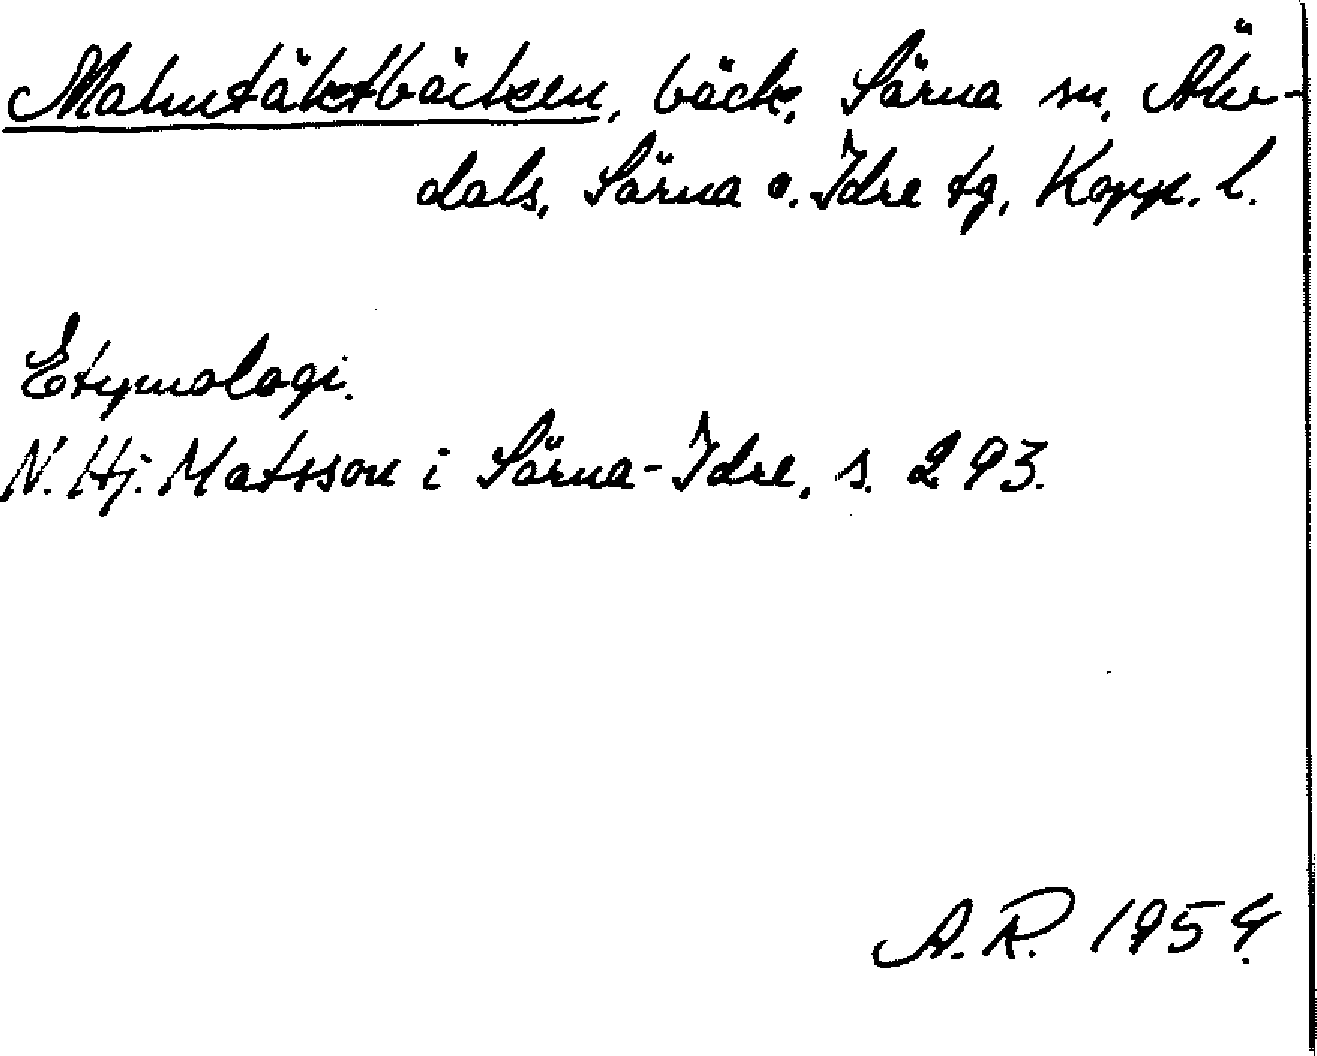 Malmtäktbäcken, bäck, Särna sn, Älv-
dals, Särna o. Idre tg, Kopp. l.
Etymologi.
N. Hj. Matsson i Särna-Idre, s. 293.
A.R. 1954.